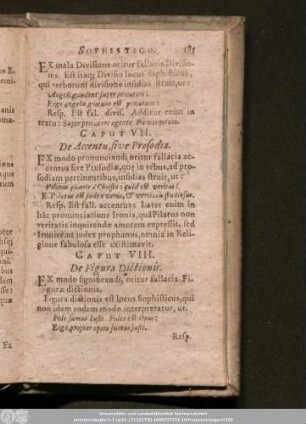 SOPHISTICO. 181
EX mala Divisione oritur fallacia Divisio-
nis. Est itaq; Divisio locus sophisticus,
qui verborum divisione insidias struit, ut:
Angeli gaudent super peccatore:
Ergo angelis gratum est peccatum:
Resp. Est fal. divis. Additur enim in
textu: Super peccatore agente Pœnitentiam.
CAPUT VII.
De Accentu, sive Prosodiæ.
EX modo pronunciandi oritur fallacia ac-
centus sive Prosodiæ, quæ in rebus, ad pro-
sodiam pertinentibus, insidias struit, ut:
Pilatus quærit à Christo: quid est veritas?
E. Pilatus est judex verus, & veritatis studiosus.
Resp. Est fall. accentus: Latet enim in
hâc pronunciatione Ironia, quâ Pilatus non
veritatis inquirendæ amorem expressit, sed
Ironicè, ut judex prophanus, omnia in Reli-
gione fabulosa esse existimavit.
CAPUT VIII.
De Figura Dictionis.
EX modo significandi, oritur fallacia Fi-
guræ dictionis.
Figura dictionis est locus Sophisticus, qui
non idem eodem modo interpretatur, ut:
Fide sumus Justi. Fides est Opus:
Ergo, propter opera sumus justi.
Resp.
Ex